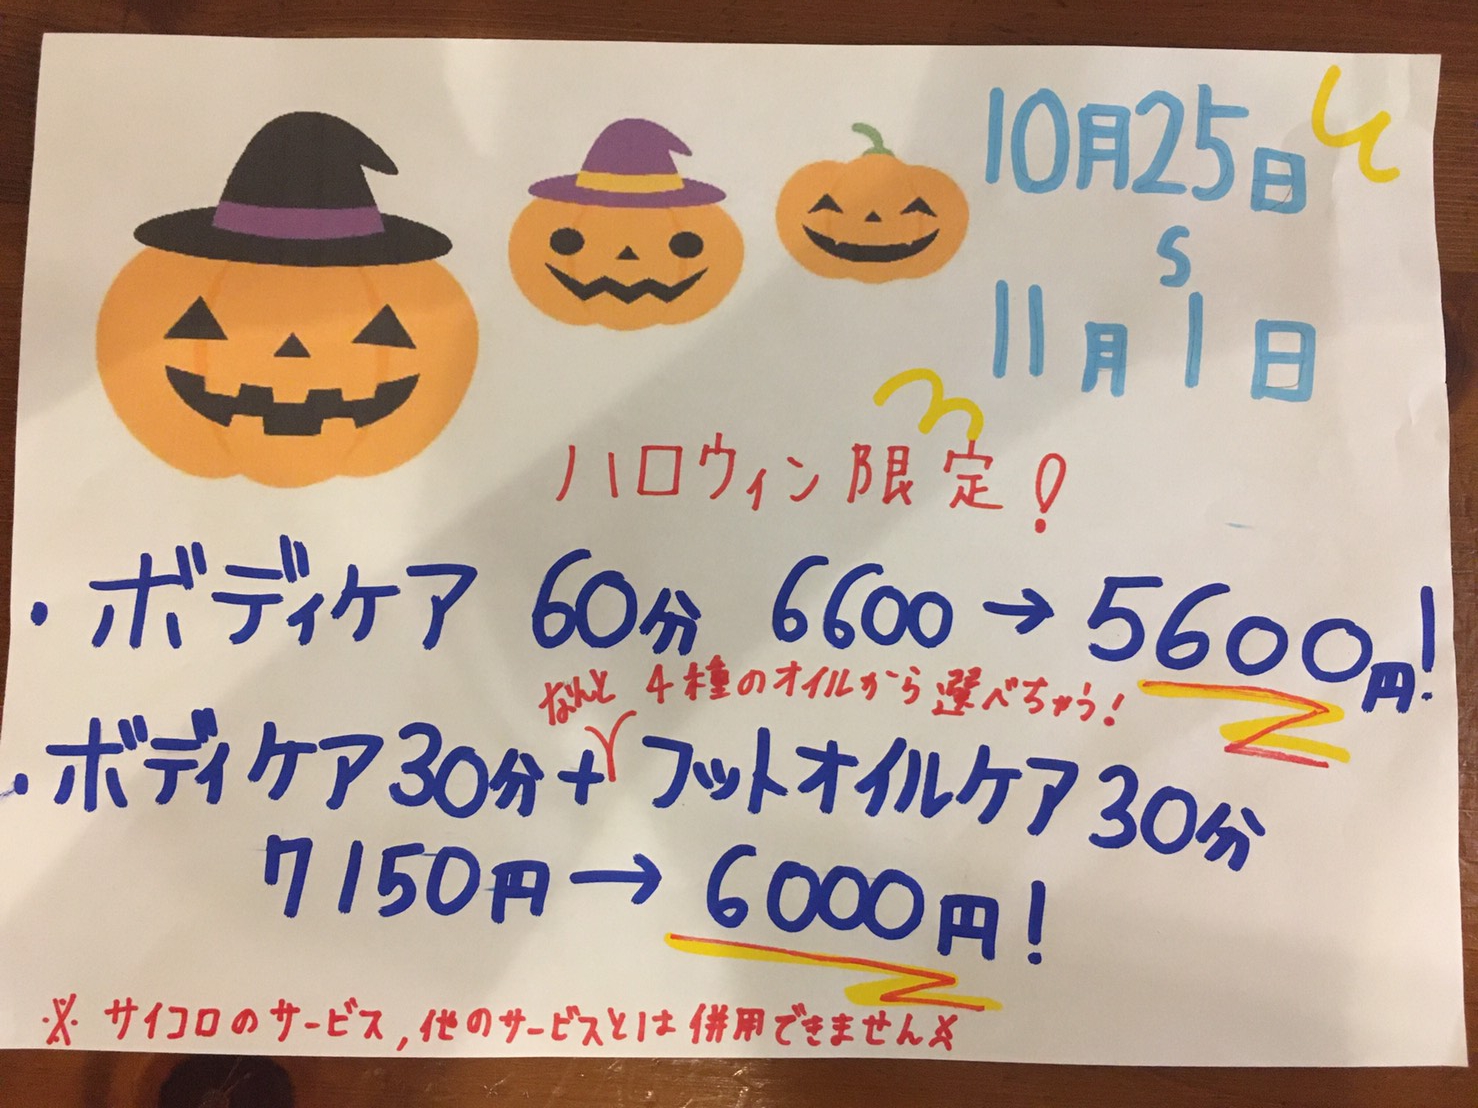 10月25日
〜
11月1日
ハロウィン限定!
・ボディケア 60分 6600→5600円!
なんと 4種のオイルから選べちゃう!
・ボディケア30分+フットオイルケア30分
7150円→6000円!
※ サイコロのサービス,他のサービスとは併用できません※